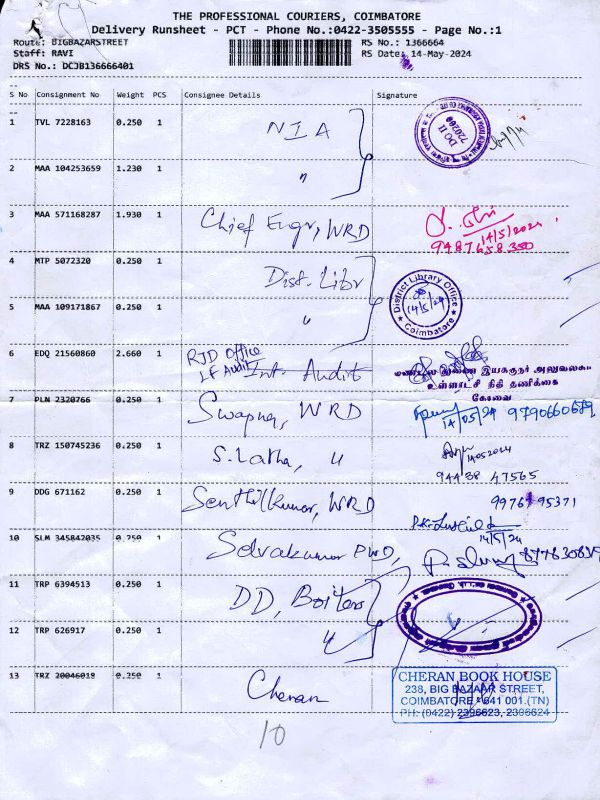 THE PROFESSIONAL COURIERS, COIMBATORE
Delivery Runsheet - PCT - Phone No.:0422-3505555 - Page No.:1
Route: BIGBAZARSTREET RS No.: 1366664
Staff: RAVI RS Date: 14-May-2024
DRS No.: DCJB136666401
S No Consignment No Weight PCS Consignee Details Signature
1 TVL 7228163 0.250 1 NIA
2 MAA 104253659 1.230 1 "
3 MAA 571168287 1.930 1 Chief Engr, WRD
14/5/2024
9487658350
4 MTP 5072320 0.250 1 Dist. Libr
District Library Office
14/5/24
★ Coimbatore ★
5 MAA 109171867 0.250 1 "
6 EDQ 21560860 2.660 1 RJD Office
LF Audit Int. Audit
மண்டல இணை இயக்குநர் அலுவலகம்
உள்ளாட்சி நிதி தணிக்கை
கோவை
7 PLN 2320766 0.250 1 Swapna, WRD
14/05/24 9790660689
8 TRZ 150745236 0.250 1 S. Latha, "
14/05/2024
94438 47565
9 DDG 671162 0.250 1 Senthilkumar, WRD
99761 95371
14/5/24
10 SLM 345842035 0.250 1 Selvakumar PWD,
11 TRP 6394513 0.250 1 DD, Boilers
12 TRP 626917 0.250 1 "
13 TRZ 20046018 0.250 1 Cheran
CHERAN BOOK HOUSE
238, BIG BAZAAR STREET,
COIMBATORE - 641 001.(TN)
PH: (0422) 2396623, 2396624
10